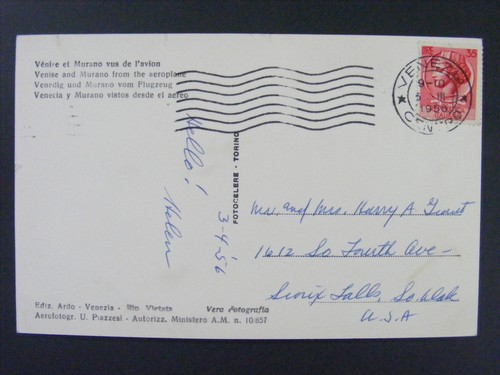 Vénise et Murano vus de l'avion
Venise and Murano from the aeroplane
Venedig und Murano vom Flugzeug
Venecia y Murano vistos desde el aereo
35 35
VENEZIA
9-10
5 III
1956
CENTRO
Hello!
Helen
3-4'56
FOTOCELERE - TORINO
Mr. and Mrs. Harry A
1612 So Fourth Ave-
Sioux Falls, So. Dak
U.S.A
Ediz. Ardo - Venezia - Rip Vietata
Vera Fotografia
Aerofotogr. U. Piazzesi - Autorizz. Ministero A.M. n. 10/857